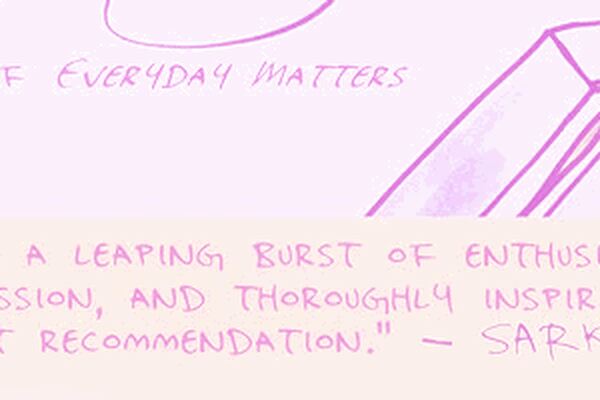 F EVERYDAY MATTERS
A LEAPING BURST OF ENTHUSI
SSION, AND THOROUGHLY INSPIR
T RECOMMENDATION." — SARK